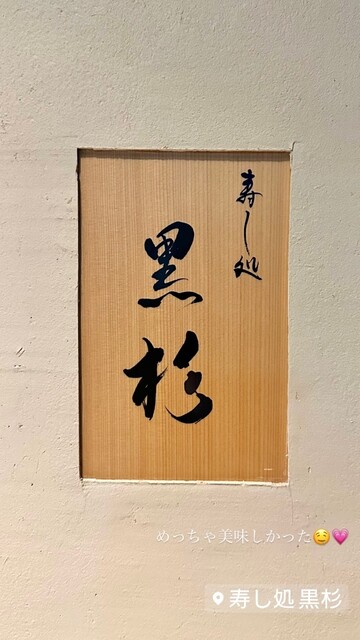 寿し処
黒杉
めっちゃ美味しかった🤤💗
寿し処 黒杉